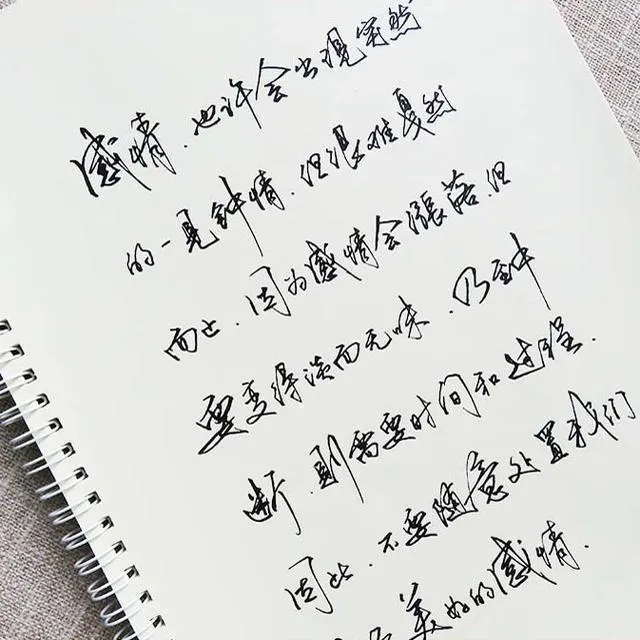 感情.也许会出现突然
的一见钟情.但很难戛然
而止.因为感情会涨落.但
要变得淡而无味.乃至中
断.则需要时间和过程.
因此.不要随意处置我们
美好的感情.